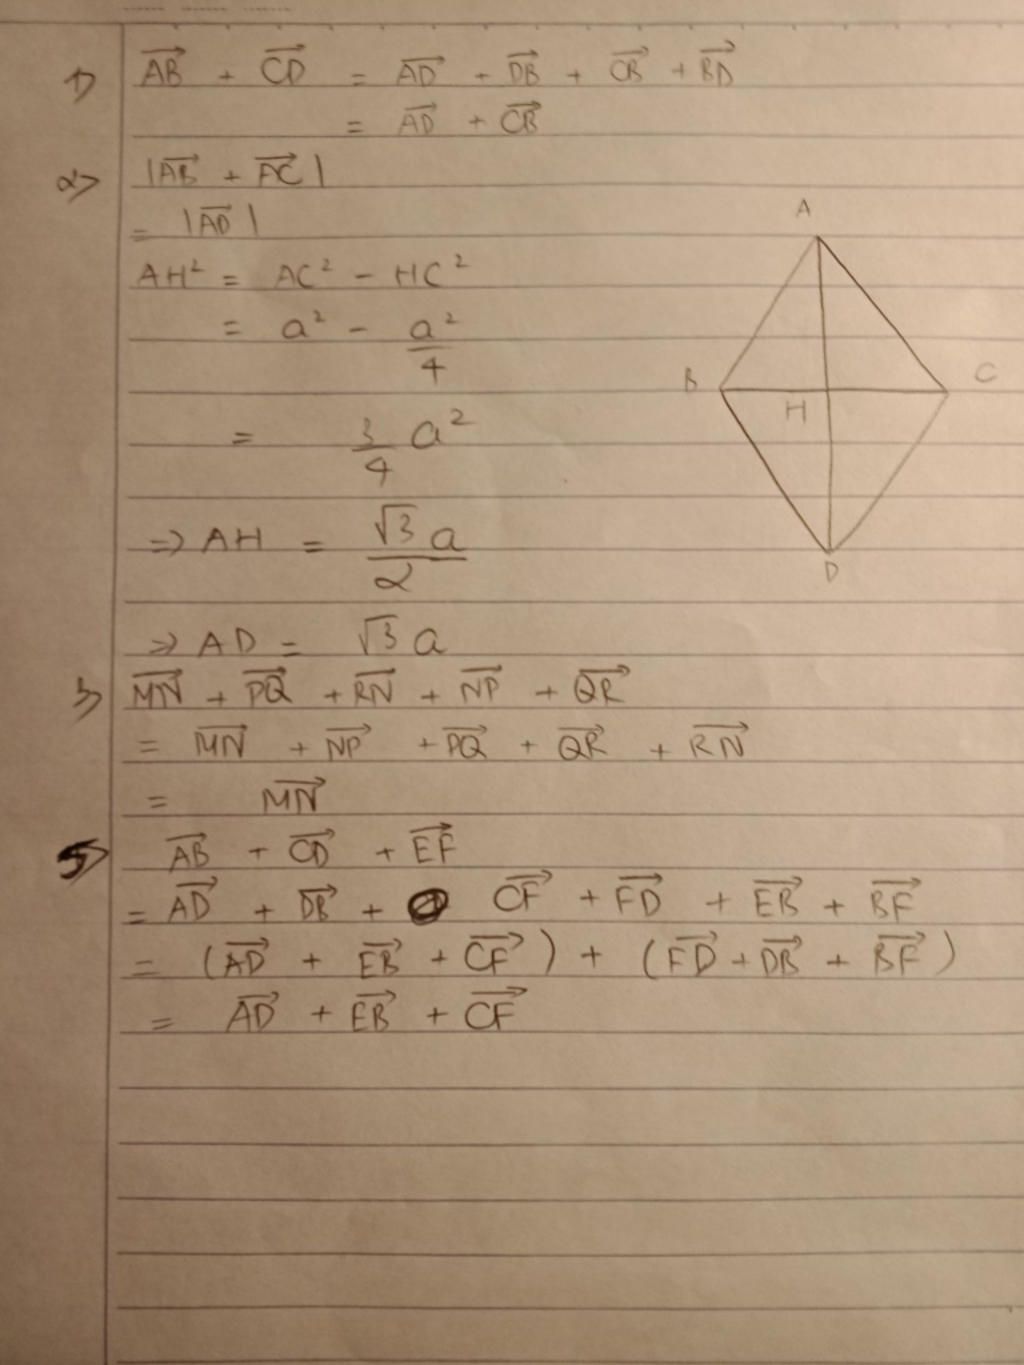 1) $\overrightarrow{AB} + \overrightarrow{CD} = \overrightarrow{AD} + \overrightarrow{DB} + \overrightarrow{CB} + \overrightarrow{BD}$
$= \overrightarrow{AD} + \overrightarrow{CB}$
2) $|\overrightarrow{AB} + \overrightarrow{AC}|$
$= |\overrightarrow{AD}|$
$AH^2 = AC^2 - HC^2$
$= a^2 - \frac{a^2}{4}$
$= \frac{3}{4} a^2$
$\Rightarrow AH = \frac{\sqrt{3} a}{2}$
$\Rightarrow AD = \sqrt{3} a$
A
B
C
H
D
3) $\overrightarrow{MN} + \overrightarrow{PQ} + \overrightarrow{RN} + \overrightarrow{NP} + \overrightarrow{QR}$
$= \overrightarrow{MN} + \overrightarrow{NP} + \overrightarrow{PQ} + \overrightarrow{QR} + \overrightarrow{RN}$
$= \overrightarrow{MN}$
5) $\overrightarrow{AB} + \overrightarrow{CD} + \overrightarrow{EF}$
$= \overrightarrow{AD} + \overrightarrow{DB} + \overrightarrow{CF} + \overrightarrow{FD} + \overrightarrow{EB} + \overrightarrow{BF}$
$= (\overrightarrow{AD} + \overrightarrow{EB} + \overrightarrow{CF}) + (\overrightarrow{FD} + \overrightarrow{DB} + \overrightarrow{BF})$
$= \overrightarrow{AD} + \overrightarrow{EB} + \overrightarrow{CF}$